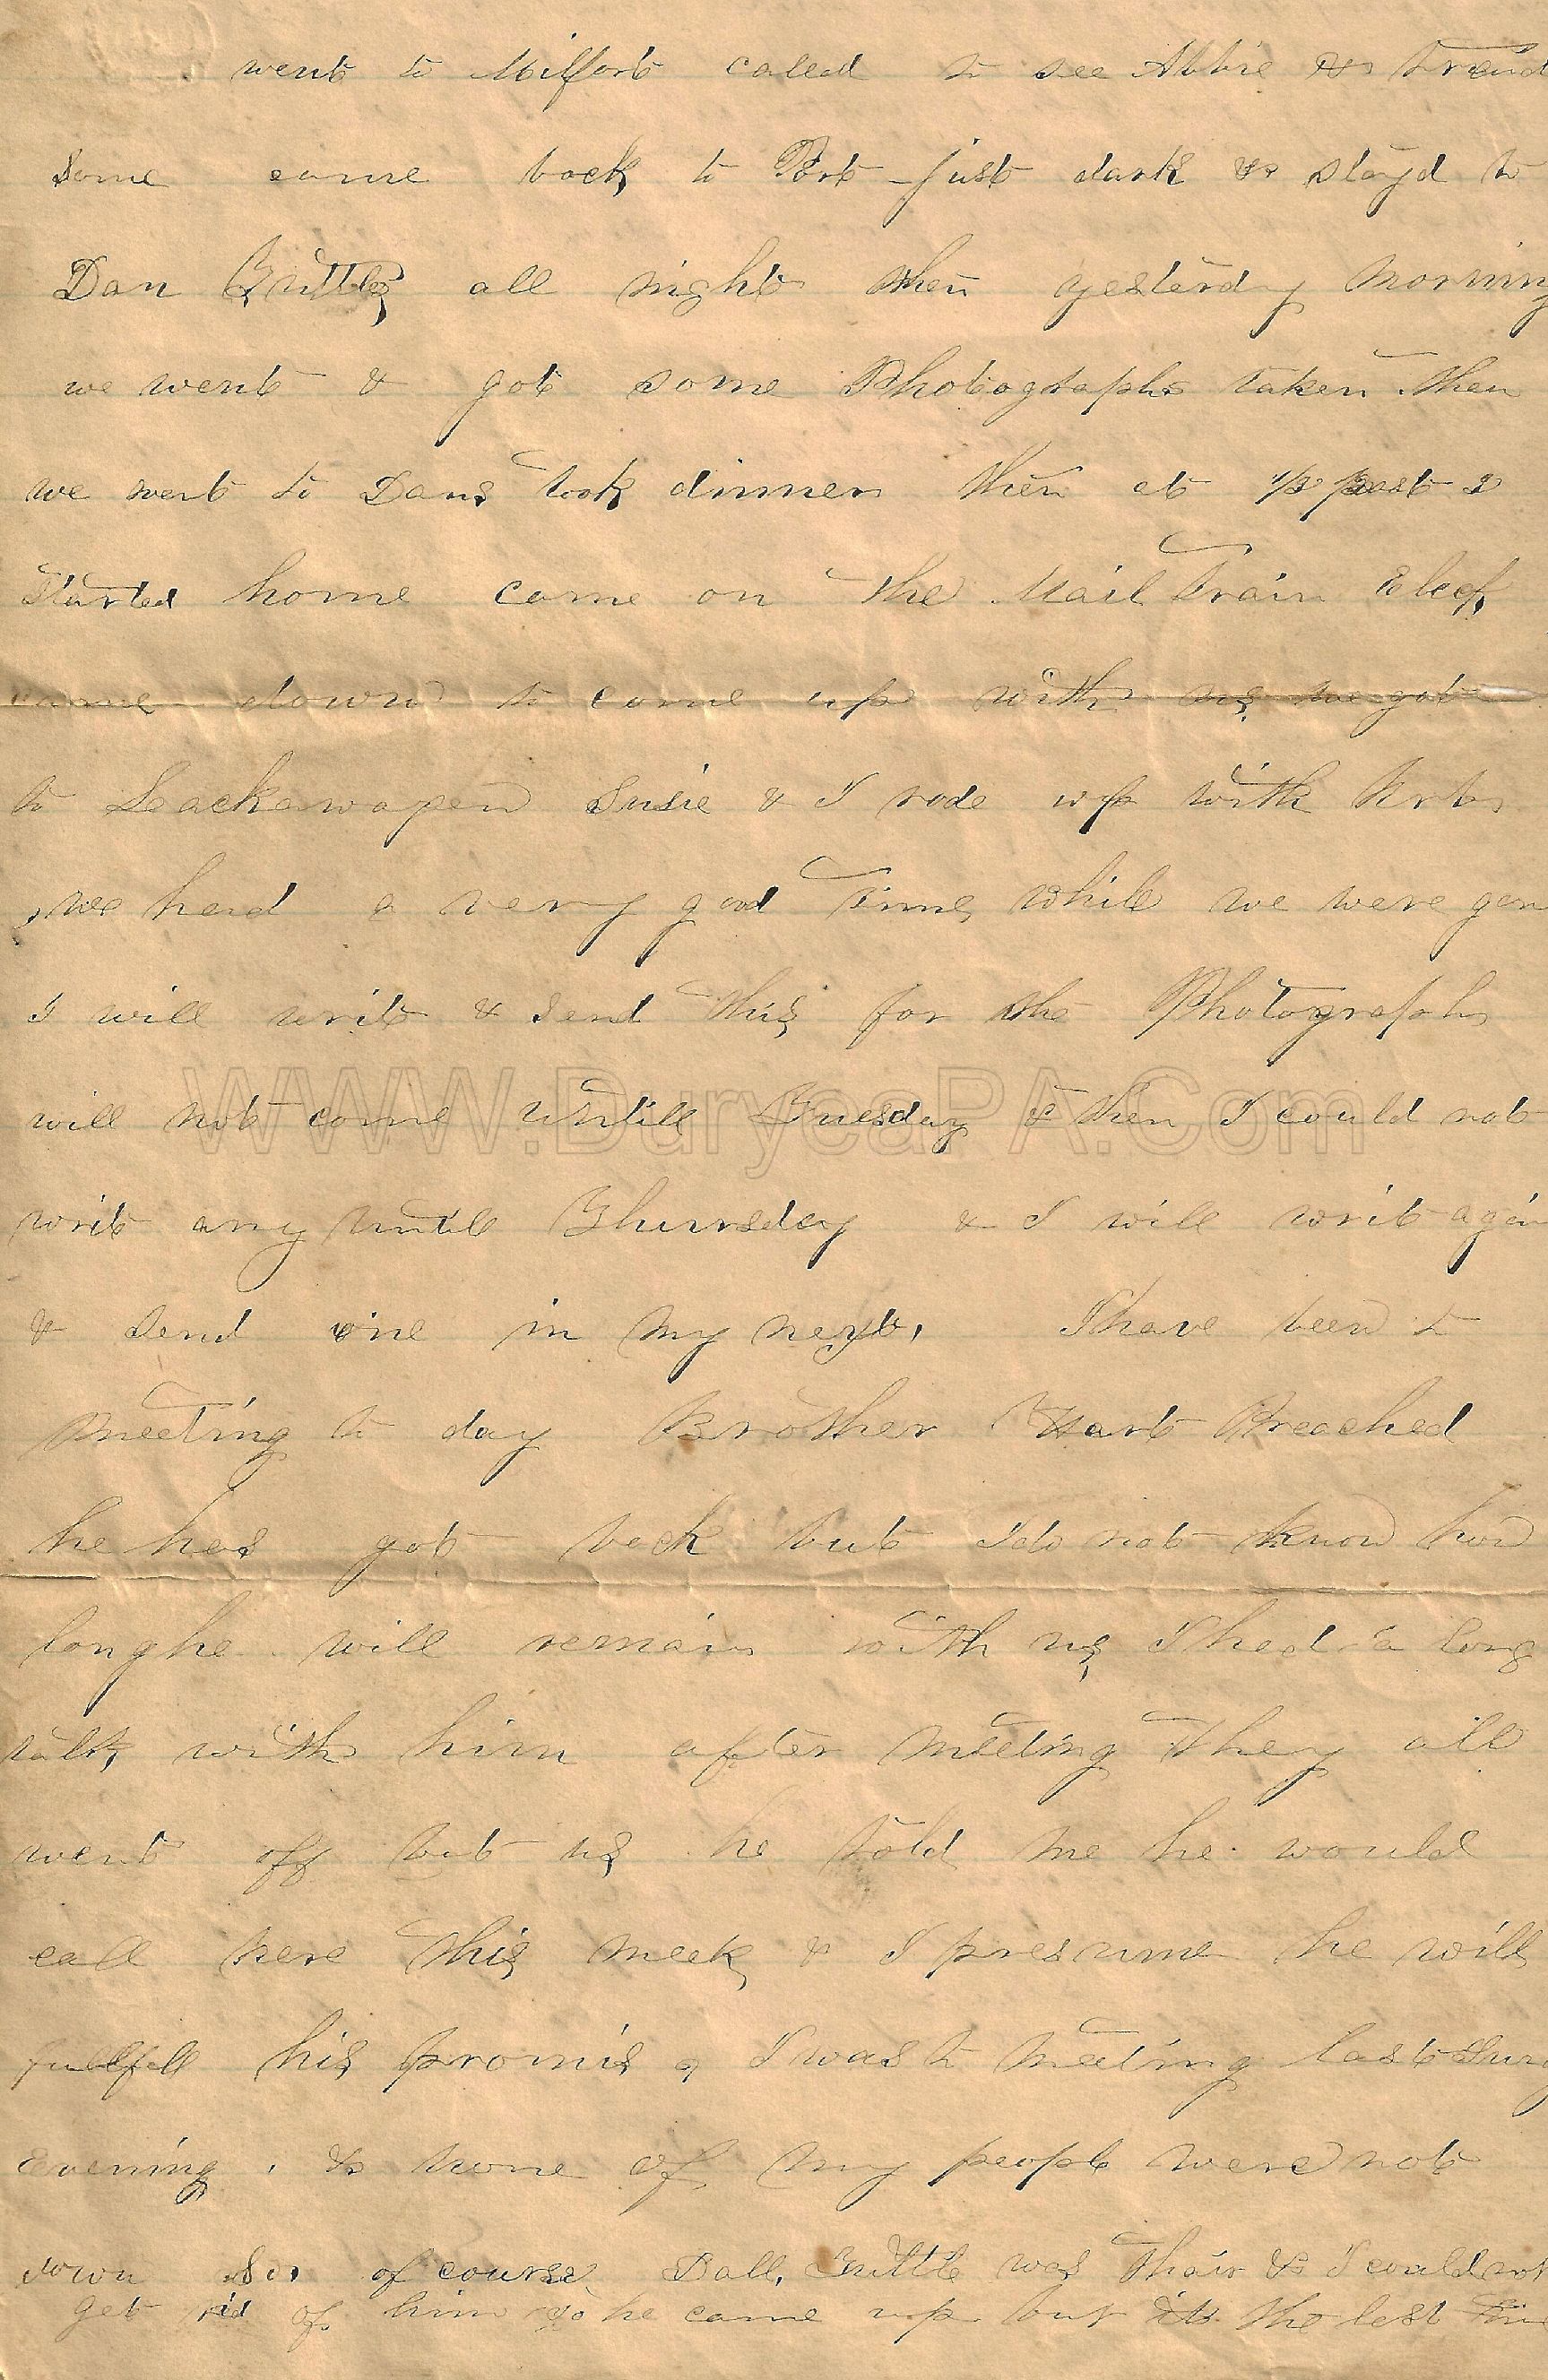 went to Milfort called to see Abbie & Friends
Some came back to Port just dark & stayd to
Dan Tuttles all night then yesterdy morning
we went & got some Photographs taken then
we went to Dans took dinner then at 1/2 past 2
started home come on the Mail Train
came down to come up with us we got
to Lackawaxen Susie & I rode up with
we had a very good time while we were gon
I will writ & send this for the Photographs
will not come untill Tuesday & then I could not
writ any untill Thursday & I will writ again
& send one in my next, I have been to
meeting to day Brother Hart Preached
he has got back but I do not know how
long he will remain with us I had a long
talk with him after meeting they all
went off but us he told me he would
call here this week & I presume he will
fullfill his promis I was to meeting last Sun
evening, & none of my people were not
down So, of course Tuttle was thair & I could not
get rid of him so he came up but its the last time
WWW.DuryeaPA.Com